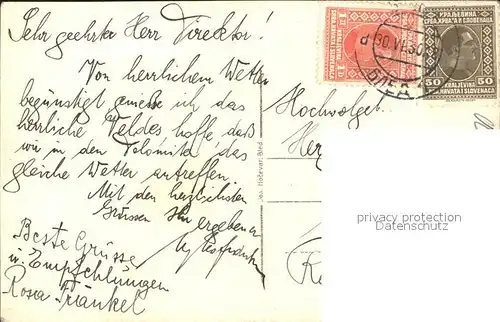 Sehr geehrter Herr Direktor!
Von herrlichem Wetter
begünstigt genieße ich das
herrliche Veldes hoffe, daß
wir in den Dolomiten das
gleiche Wetter antreffen.
Mit den herzlichsten
Grüssen Ihr ergebener
Beste Grüsse
u. Empfehlungen
Rosa Fränkel
Hochwolgeb.
30.VI.30
БЛЕД
КРАЉЕВИНА
СРБА, ХРВАТА И СЛОВЕНАЦА
50 50
KRALJEVINA
HRVATA I SLOVENACA
Hočevar, Bled
privacy protection
Datenschutz